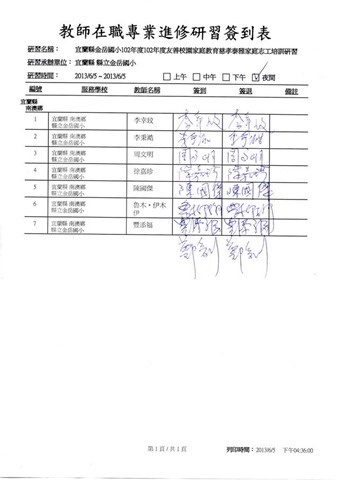 教師在職專業進修研習簽到表
研習名稱： 宜蘭縣金岳國小102年度102年度友善校園家庭教育慈孝泰雅家庭志工培訓研習
研習承辦單位： 宜蘭縣 縣立金岳國小
研習時間： 2013/6/5 ~ 2013/6/5 □上午 □中午 □下午 ☑夜間
編號 服務學校 教師名稱 簽到 簽退 備註
宜蘭縣
南澳鄉
1 宜蘭縣 南澳鄉 李宰玟
縣立金岳國小
2 宜蘭縣 南澳鄉 李秉澔
縣立金岳國小
3 宜蘭縣 南澳鄉 周文明 周文明 周文明
縣立金岳國小
4 宜蘭縣 南澳鄉 徐嘉珍
縣立金岳國小
5 宜蘭縣 南澳鄉 陳國傑 陳國傑 陳國傑
縣立金岳國小
6 宜蘭縣 南澳鄉 魯木‧伊木
縣立金岳國小 伊
7 宜蘭縣 南澳鄉 豐添福
縣立金岳國小
第 1 頁 / 共 1 頁 列印時間： 2013/6/5 下午 04:36:00